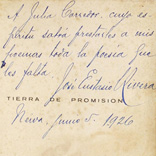 A Julia Corredor, cuyo es-
píritu sabrá prestarles a mis
poemas toda la poesía que
les falta.
José Eustasio Rivera
TIERRA DE PROMISION
Neiva, Junio 5. 1926